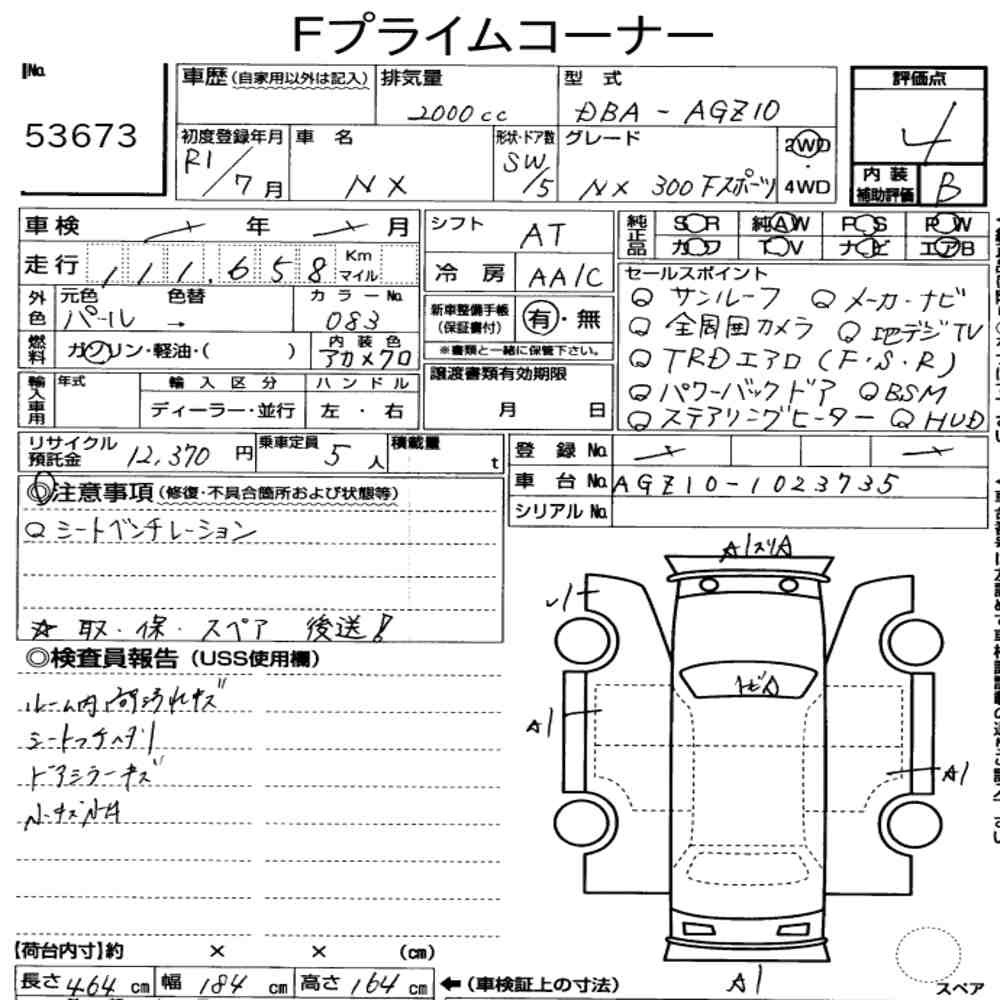 Fプライムコーナー
No.
53673
車歴(自家用以外は記入)
排気量
2000cc
型 式
DBA - AGZ10
評価点
4
初度登録年月
R1/7月
車 名
NX
形状・ドア数
SW/5
グレード
NX 300 Fスポーツ
2WD
・
4WD
内装補助評価
B
車検 年 月
走行 111,658 Km マイル
シフト
AT
冷 房
AA/C
純正品
S◯R 純AW P◯S P◯W
カ◯ワ T◯V ナビ エアB
セールスポイント
○ サンルーフ ○ メーカ・ナビ
○ 全周囲カメラ ○ 地デジTV
○ TRDエアロ(F・S・R)
○ パワーバックドア ○ BSM
○ ステアリングヒーター ○ HUD
外色
元色 色替
パール →
カラーNo.
083
新車整備手帳(保証書付)
有・無
※書類と一緒に保管下さい。
燃料
ガソリン・軽油・( )
内装色
アカ×クロ
輸入車用
年式
輸入区分
ディーラー・並行
ハンドル
左 ・ 右
譲渡書類有効期限
月 日
リサイクル預託金 12,370 円
乗車定員 5 人
積載量 t
登 録 No.
車 台 No. AGZ10-1023735
シリアル No.
◎注意事項(修復・不具合箇所および状態等)
○ シートベンチレーション
☆ 取・保・スペア 後送!
◎検査員報告(USS使用欄)
ルーム内 荷汚れキズ
ドアミラーキズ
A1スリA
A1
A1
トビA
A1
スペア
【荷台内寸】約 × × (cm)
長さ 464 cm 幅 184 cm 高さ 164 cm ←(車検証上の寸法)